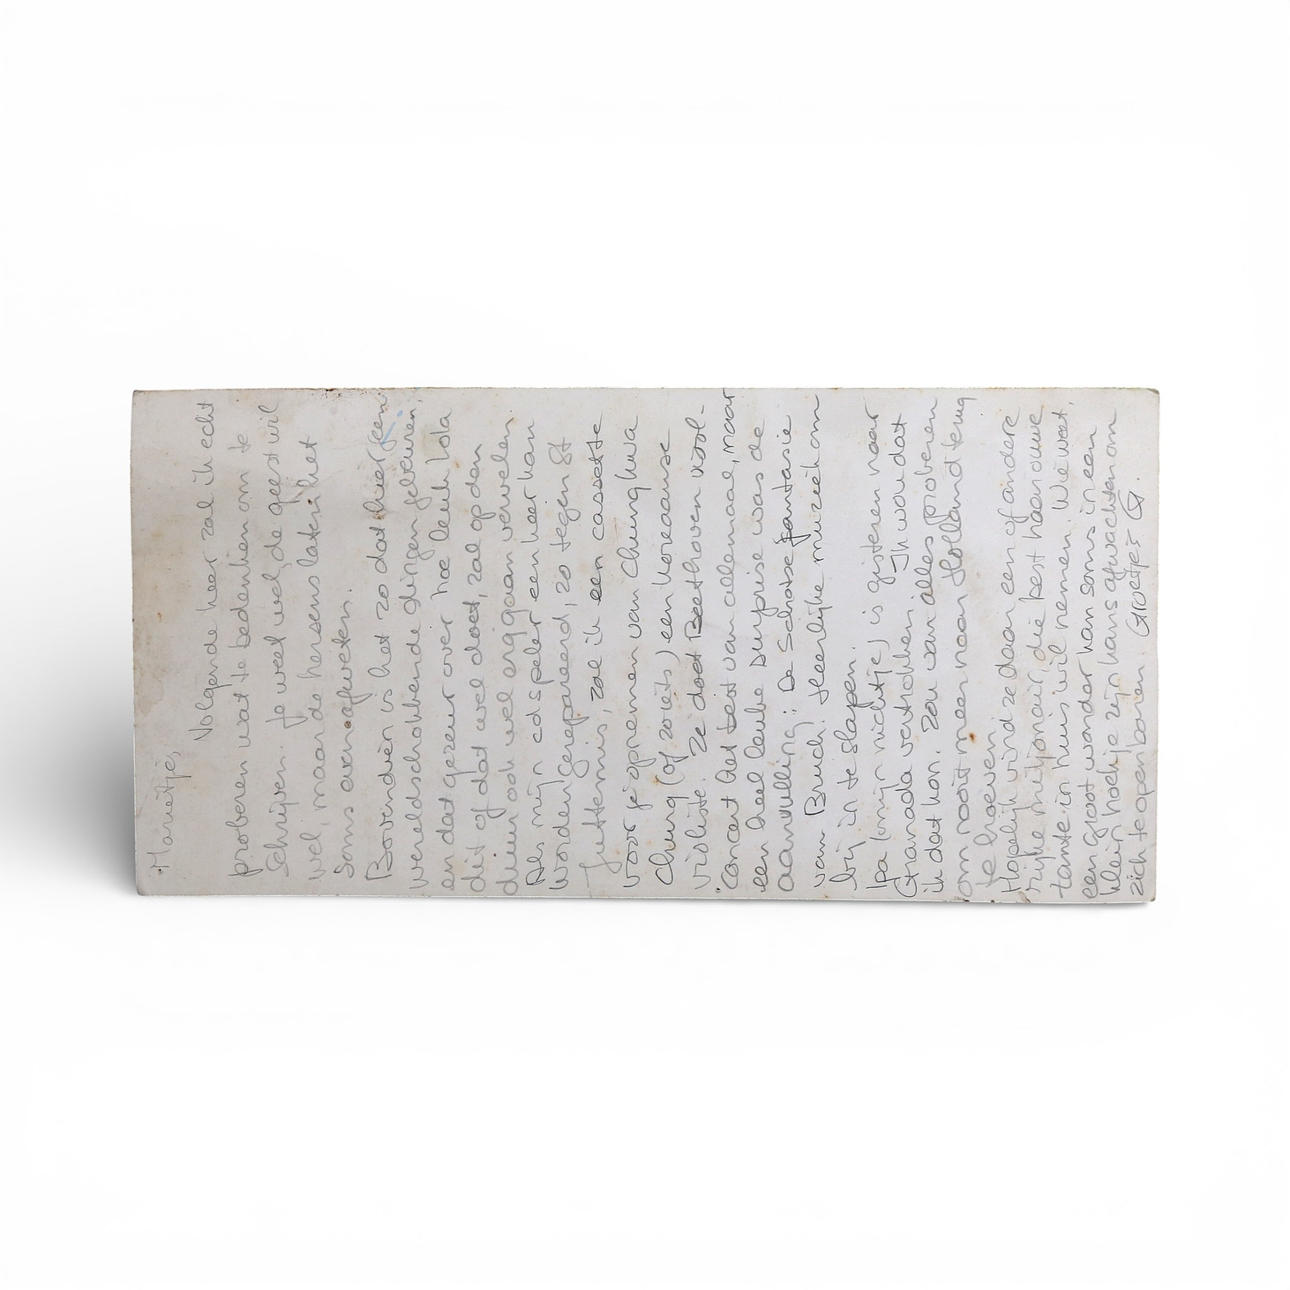 Manetje,
Volgende keer zal ik echt
proberen wat te bedenken om te
schrijven. Je weet wel, de geest wil
wel, maar de hersens laten het
soms even afweten.
Bovendien is het zo dat hier geen
wereldschokkende dingen gebeuren,
en dat gezeur over hoe leuk Lola
dit of dat wel doet, zal op den
duur ook wel erg gaan vervelen.
Als mijn cd speler een keer kan
worden gerepareerd, zo tegen St
Juttemis, zal ik een cassette
voor je opnemen van Chung hwa
Chung (of zoiets) een Koreaanse
violiste. Ze doet Beethoven viool-
concert het best van allemaal, maar
een heel leuke surprise was de
aanvulling: De Schotse fantasie
van Bruch. Heerlijke muziek om
bij in te slapen.
Ipa (mijn nichtje) is gisteren naar
Granada vertrokken. Ik wou dat
ik dat kon. Zou van alles proberen
om nooit meer naar Holland terug
te hoeven.
Hopelijk vind ze daar een of andere
rijke miljonair die best haar ouwe
tante in huis wil nemen. Wie weet,
een groot wonder kan soms in een
klein hoekje zijn kans afwachten om
zich te openbaren. Groetjes Q.